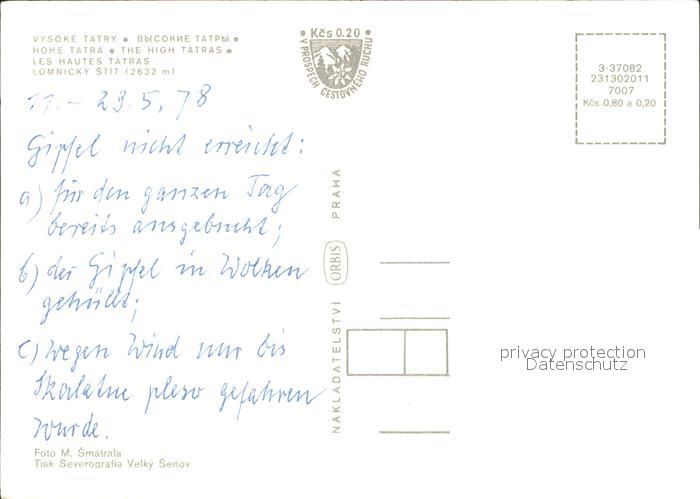 VYSOKÉ TATRY • ВЫСОКИЕ ТАТРЫ •
HOHE TATRA • THE HIGH TATRAS •
LES HAUTES TATRAS
LOMNICKÝ ŠTÍT (2632 m)
• Kčs 0.20 •
V PROSPĚCH CESTOVNÉHO RUCHU
3-37082
231302011
7007
Kčs 0,80 a 0,20
11. – 29.5.78
Gipfel nicht erreicht:
a) für den ganzen Tag
bereits ausgebucht;
b) der Gipfel in Wolken
gehüllt;
c) wegen Wind nur bis
Skalatne pleso gefahren
wurde.
NAKLADATELSTVÍ ORBIS PRAHA
privacy protection
Datenschutz
Foto M. Šmátrala
Tisk Severografia Velký Šenov